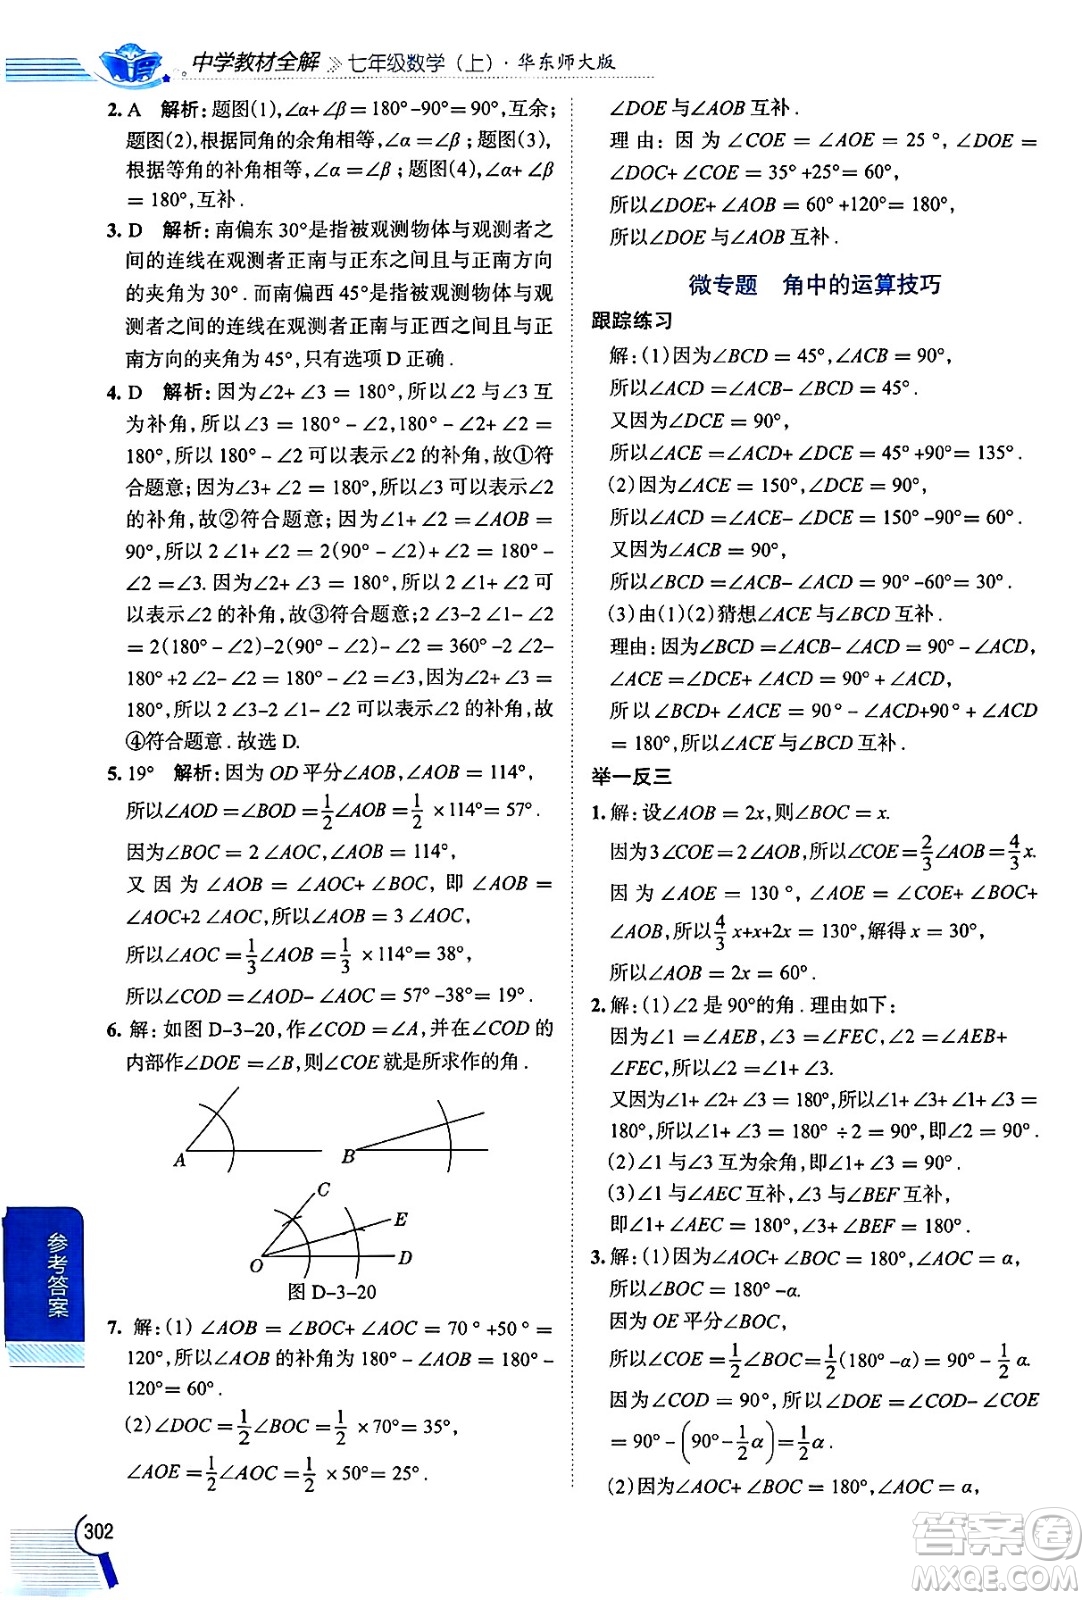 中学教材全解 》七年级数学（上）·华东师大版
2. A 解析：题图(1)，∠α+∠β=180°-90°=90°，互余；
题图(2)，根据同角的余角相等，∠α=∠β；题图(3)，
根据等角的补角相等，∠α=∠β；题图(4)，∠α+∠β
=180°，互补.
3. D 解析：南偏东30°是指被观测物体与观测者之
间的连线在观测者正南与正东方向
的夹角为30°.而南偏西45°是指被观测物体与观
测者之间的连线在观测者正南与正西之间、与正
南方向的夹角为45°，只有选项D正确.
4. D 解析：因为∠2+∠3=180°，所以∠2与∠3互
为补角，所以∠3=180°-∠2，180°-∠2=∠3，
所以180°-∠2可以表示∠2的补角，故①符
合题意；因为∠3+∠2=180°，所以∠3可以表示∠2
的补角，故②符合题意；因为∠1+∠2=∠AOB=
90°，所以2∠1+∠2=2(90°-∠2)+∠2=180°-
∠2=∠3.因为∠3+∠2=180°，所以2∠1+∠2可
以表示∠2的补角，故③符合题意；2∠3-2∠1
=2(180°-∠2)-2(90°-∠2)=360°-2∠2-
180°+2∠2=180°=∠2+∠3，因为∠3=180°-
∠2=2∠3-2∠1-∠2，所以可以表示∠2的补角，故
④符合题意.故选D.
5. 19° 解析：因为OD平分∠AOB，∠AOB=114°，
所以∠AOD=∠BOD=1/2∠AOB=1/2×114°=57°.
因为∠BOC=2∠AOC，∠AOB=114°，
又因为∠AOB=∠AOC+∠BOC，即∠AOB=
∠AOC+2∠AOC，所以∠AOB=3∠AOC，
所以∠AOC=1/3∠AOB=1/3×114°=38°，
所以∠COD=∠AOD-∠AOC=57°-38°=19°.
6. 解：如图D-3-20，作∠COD=∠A，并在∠COD的
内部作∠DOE=∠B，则∠COE就是所求作的角.
A
B
C
E
O
D
图D-3-20
7. 解：(1)∠AOB=∠BOC+∠AOC=70°+50°=
120°，所以∠AOB的补角为180°-∠AOB=180°-
120°=60°.
(2)∠DOC=1/2∠BOC=1/2×70°=35°，
∠AOE=1/2∠AOC=1/2×50°=25°.
∠DOE与∠AOB互补.
理由：因为∠COE=∠AOE=25°，∠DOE=
∠DOC+∠COE=35°+25°=60°，
所以∠DOE+∠AOB=60°+120°=180°，
所以∠DOE与∠AOB互补.
微专题 角中的运算技巧
跟踪练习
解：(1)因为∠BCD=45°，∠ACB=90°，
所以∠ACD=∠ACB-∠BCD=45°.
又因为∠DCE=90°，
所以∠ACE=∠ACD+∠DCE=45°+90°=135°.
(2)因为∠ACE=150°，∠DCE=90°，
所以∠ACD=∠ACE-∠DCE=150°-90°=60°.
又因为∠ACB=90°，
所以∠BCD=∠ACB-∠ACD=90°-60°=30°.
(3)由(1)(2)猜想∠ACE与∠BCD互补.
理由：因为∠BCD=∠ACB-∠ACD=90°-∠ACD，
∠ACE=∠ACD+∠DCE=90°+∠ACD，
所以∠BCD+∠ACE=90°-∠ACD+90°+∠ACD
=180°，所以∠ACE与∠BCD互补.
举一反三
1. 解：设∠AOB=2x，则∠BOC=x.
因为3∠COE=2∠AOB，所以∠COE=2/3∠AOB=4/3x.
因为∠AOE=130°，∠AOE=∠COE+∠BOC+
∠AOB，所以4/3x+x+2x=130°，解得x=30°，
所以∠AOB=2x=60°.
2. 解：(1)∠2是90°的角.理由如下：
因为∠1=∠AEB，∠3=∠FEC，∠AEB+
∠FEC=∠2，所以∠2=∠1+∠3.
又因为∠1+∠2+∠3=180°，所以∠1+∠3+∠1+∠3=
180°，所以∠1+∠3=180°÷2=90°，即∠2=90°.
(2)∠1与∠3互为余角，即∠1+∠3=90°.
(3)∠1与∠AEC互补，∠3与∠BEF互补，
即∠1+∠AEC=180°，∠3+∠BEF=180°.
3. 解：(1)因为∠AOC+∠BOC=180°，∠AOC=α，
所以∠BOC=180°-α.
因为OE平分∠BOC，
所以∠COE=1/2∠BOC=1/2(180°-α)=90°-1/2α.
因为∠COD=90°，所以∠DOE=∠COD-∠COE
=90°-(90°-1/2α)=1/2α.
(2)因为∠AOC+∠BOC=180°，∠AOC=α，
参考答案
302
答案卷
MXQE.COM